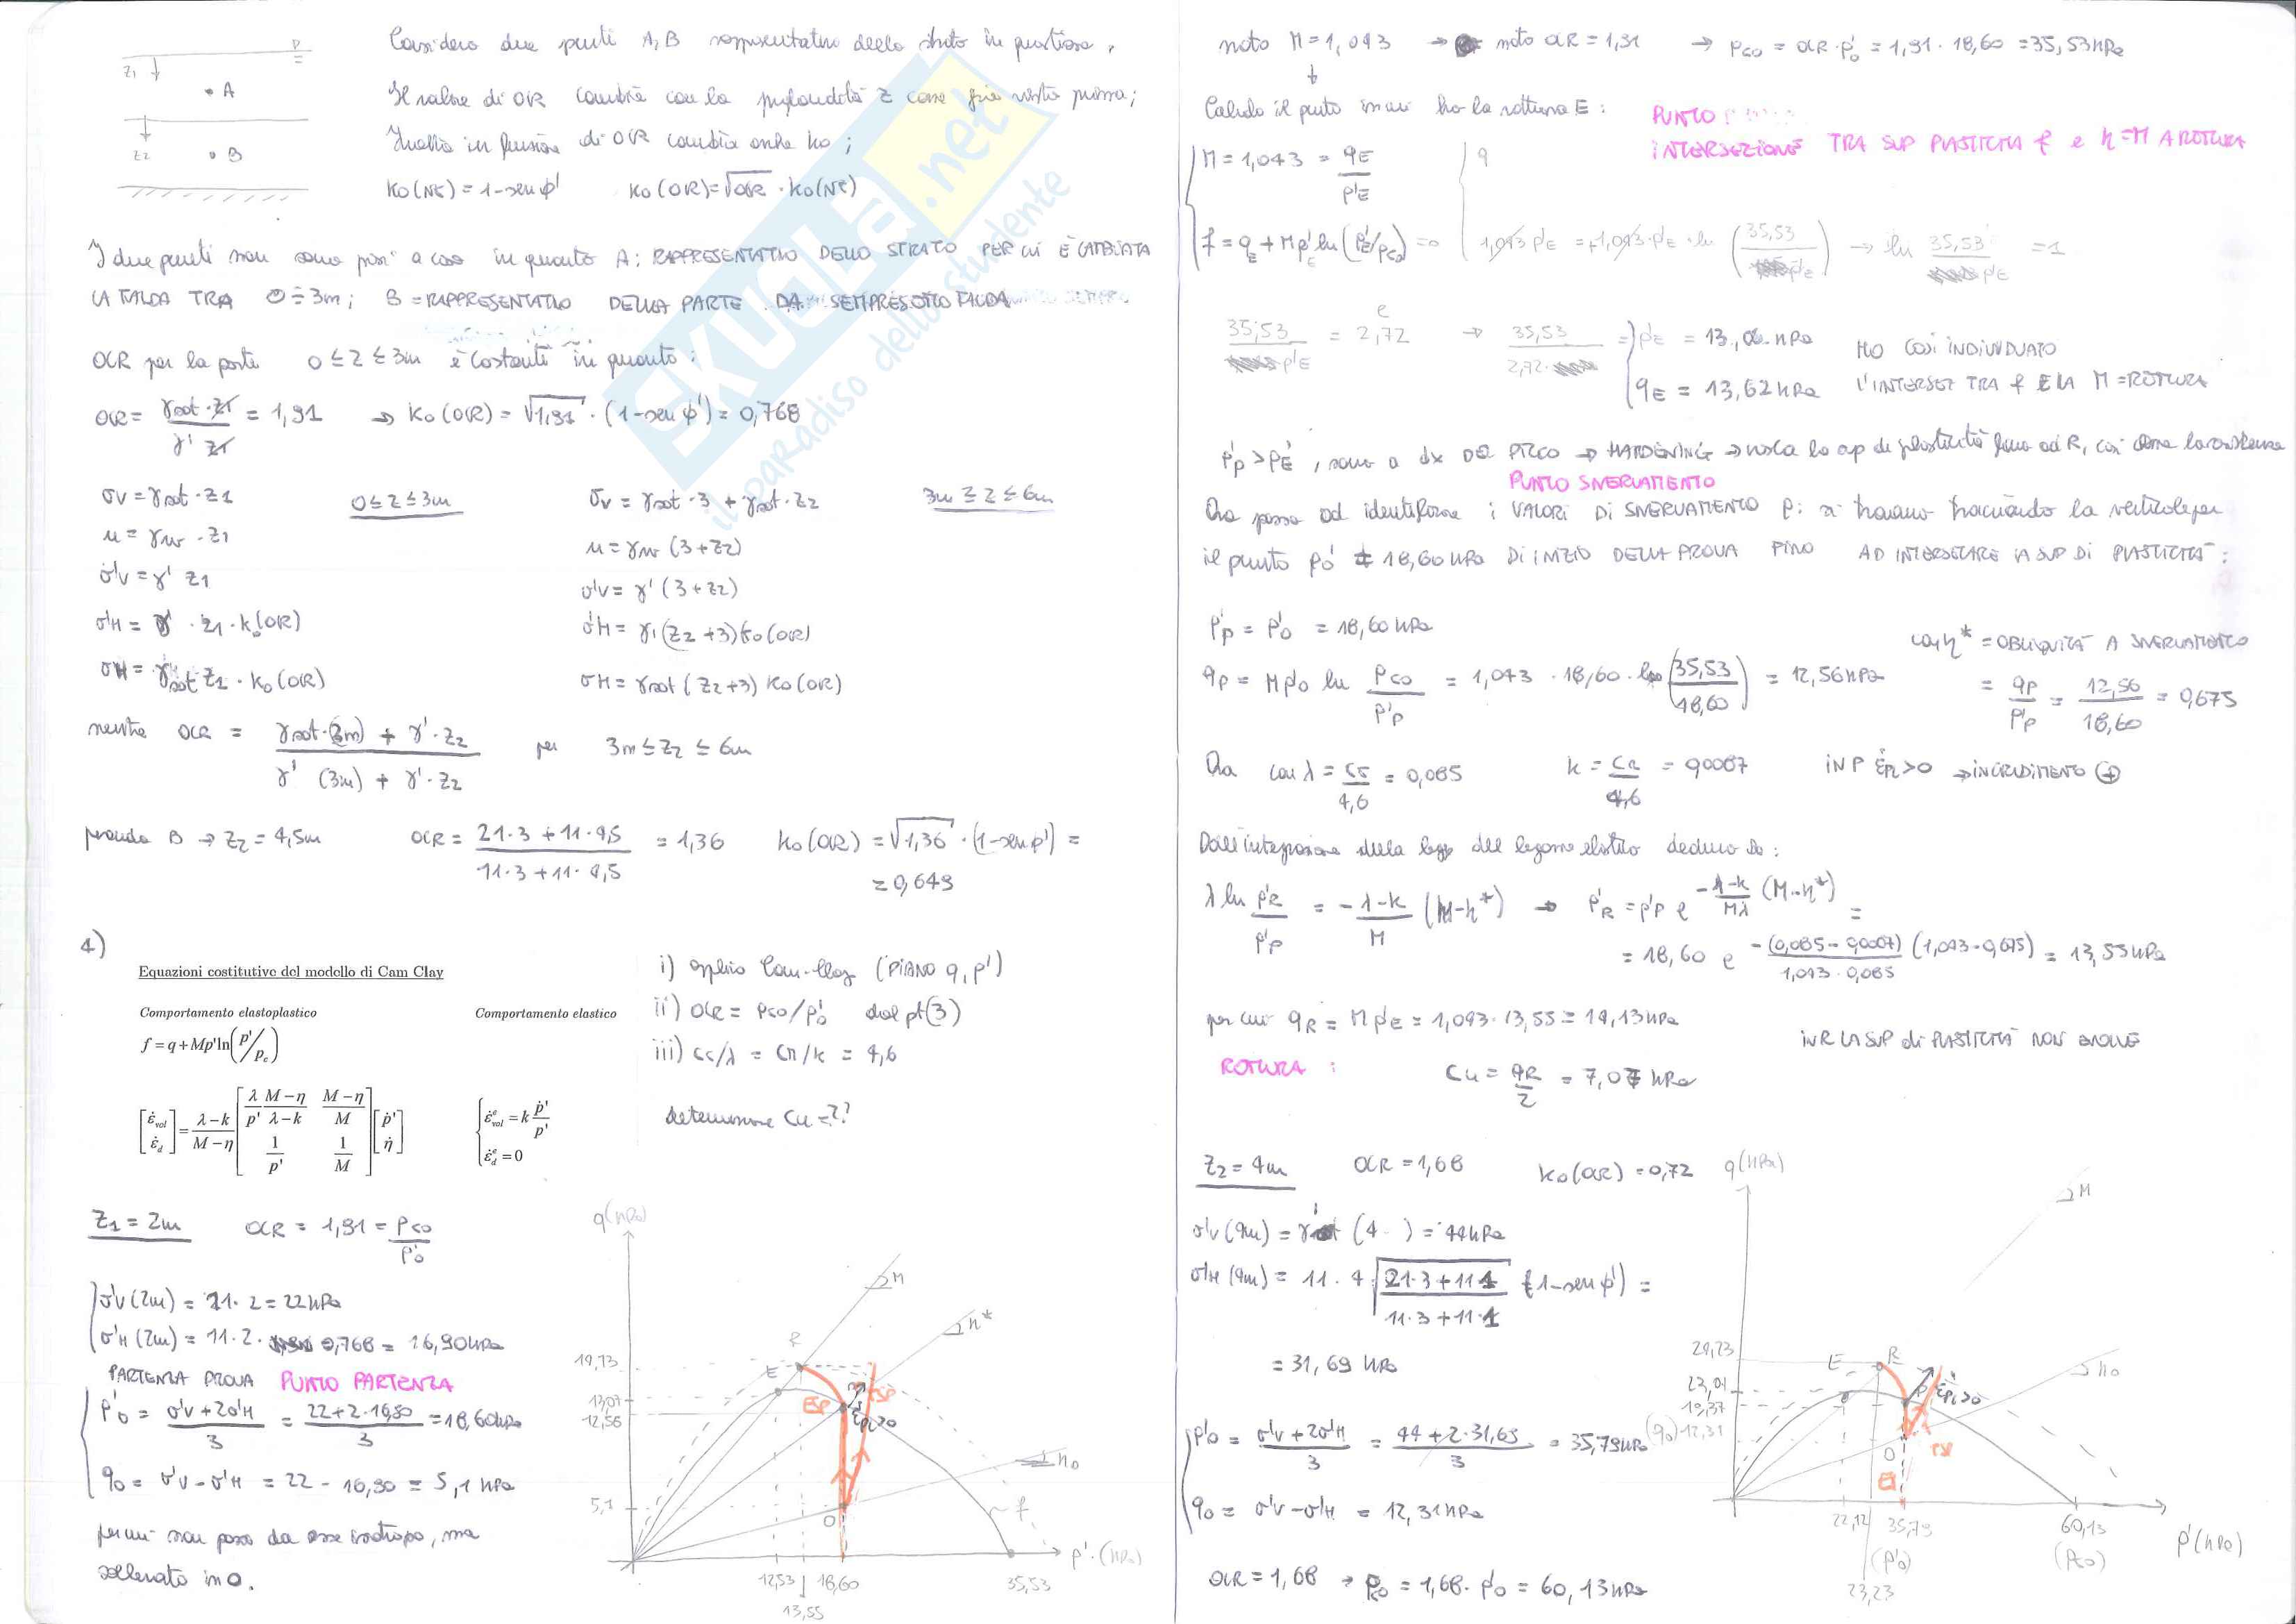 Considero due punti A, B rappresentativi dello strato in questione.
Il valore di OCR cambia con la profondità z come già visto prima;
Inoltre in funzione di OCR cambia anche k0;
k0(NC) = 1-sen φ' k0(OCR) = √OCR · k0(NC)
z1
A
z2
B
I due punti non sono presi a caso in quanto A: RAPPRESENTATIVO DELLO STRATO PER CUI È CAMBIATA
LA FALDA TRA 0÷3m; B = RAPPRESENTATIVO DELLA PARTE DA SEMPRE SOTTO FALDA
OCR per la parte 0 ≤ z ≤ 3m è costante in quanto:
OCR = γsat·z1 / γ' z1 = 1,91 → k0(OCR) = √1,91 · (1-sen φ') = 0,768
σv = γsat · z1 0 ≤ z ≤ 3m
u = γw · z1
σ'v = γ' z1
σ'H = γ' · z1 · k0(OCR)
σH = γsat z1 · k0(OCR)
σv = γsat · 3 + γsat · z2 3m ≤ z ≤ 6m
u = γw (3+z2)
σ'v = γ' (3+z2)
σ'H = γ' (z2+3) k0(OCR)
σH = γsat (z2+3) k0(OCR)
mentre OCR = γsat·(3m) + γ'·z2 / γ' (3m) + γ'·z2 per 3m ≤ z2 ≤ 6m
prendo B → z2 = 4,5m OCR = 21·3 + 11·4,5 / 11·3 + 11·4,5 = 1,36 k0(OCR) = √1,36 · (1-sen φ') =
= 0,649
4)
Equazioni costitutive del modello di Cam Clay
Comportamento elastoplastico Comportamento elastico
f = q + Mp' ln(p'/pc)
[ε̇vol ε̇d] = λ-k / M-η [λ/p' M-η/λ-k M-η/M 1/p' 1/M] [ṗ' η̇]
{ε̇ᵉvol = k ṗ'/p'
ε̇ᵉd = 0
i) applico Cam-Clay (PIANO q, p')
ii) OCR = pco/p'0 dal pt(3)
iii) cc/λ = cr/k = 4,6
determinare Cu = ??
z1 = 2m OCR = 1,91 = pco/p'0
σ'v (2m) = 11·2 = 22 kPa
σ'H (2m) = 11·2· 0,768 = 16,90 kPa
PARTENZA PROVA PUNTO PARTENZA
p'0 = σ'v + 2σ'H / 3 = 22 + 2·16,90 / 3 = 18,60 kPa
q0 = σ'v - σ'H = 22 - 16,90 = 5,1 kPa
per cui non parto da asse isotropo, ma
sollevato in O.
q(kPa)
M
η*
η0
R
E
ESP
TSP
ε̇pl>0
O
f
14,13
13,07
12,56
5,1
12,53
18,60
35,53
13,55
p' (kPa)
noto M = 1,043 → noto OCR = 1,91 → pco = OCR·p'0 = 1,91 · 18,60 = 35,53 kPa
Calcolo il punto in cui ho la rottura E:
PUNTO
INTERSEZIONE TRA SUP PLASTICITÀ f e η=M A ROTTURA
M = 1,043 = qE / p'E
f = qE + M p'E ln (p'E/pco) = 0
q
1,043 p'E = +1,043·p'E · ln (35,53 / p'E) → ln 35,53 / p'E = 1
35,53 / p'E = e 2,72 → 35,53 / 2,72 ⇒ p'E = 13,06 kPa HO COSÌ INDIVIDUATO
qE = 13,62 kPa L'INTERSEZ TRA f E LA M = ROTTURA
p'p > p'E, sono a dx DEL PICCO → HARDENING →
PUNTO SNERVAMENTO
Ora passo ad identificare i VALORI DI SNERVAMENTO P: si trovano tracciando la verticale per
il punto p'0 = 18,60 kPa DI INIZIO DELLA PROVA FINO AD INTERSECARE LA SUP DI PLASTICITÀ:
p'p = p'0 = 18,60 kPa
qp = M p'0 ln pco / p'p = 1,043 · 18,60 · (35,53 / 18,60) = 12,56 kPa
con η* = OBLIQUITÀ A SNERVAMENTO
= qp / p'p = 12,56 / 18,60 = 0,675
Ora con λ = cc / 4,6 = 0,085 k = cr / 4,6 = 0,0087 IN P ε̇pl>0 → INCRUDIMENTO ⊕
Dall'integrazione della legge del legame elastico deduco :
λ ln p'R / p'p = - λ-k / M (M-η*) → p'R = p'p e - λ-k / Mλ (M-η*) =
= 18,60 e -(0,085-0,0087) / 1,043·0,085 (1,043-0,675) = 13,55 kPa
per cui qR = M p'E = 1,043 · 13,55 = 14,13 kPa
IN R LA SUP di PLASTICITÀ NON EVOLVE
ROTTURA : Cu = qR / 2 = 7,07 kPa
z2 = 4m OCR = 1,68 k0(OCR) = 0,72
σ'v (4m) = γ' (4 ) = 44 kPa
σ'H (4m) = 11·4 √21·3+11·1 / 11·3+11·1 (1-sen φ') =
= 31,69 kPa
p'0 = σ'v + 2σ'H / 3 = 44 + 2·31,69 / 3 = 35,79 kPa
q0 = σ'v - σ'H = 12,31 kPa
OCR = 1,68 → pco = 1,68 · p'0 = 60,13 kPa
q(kPa)
M
η0
E
R
P
ε̇pl>0
O
24,23
23,01
19,37
(q0) 12,31
22,12
35,79
(p'0)
23,23
60,13
(pco)
p'(kPa)
SKUOLA.net
il paradiso dello studente